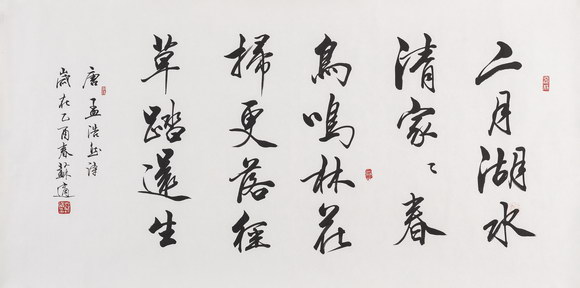 二月湖水
清家〻春
鳥鳴林花
掃更落徑
草踏還生
唐孟浩然詩
歲在乙酉春蘇適